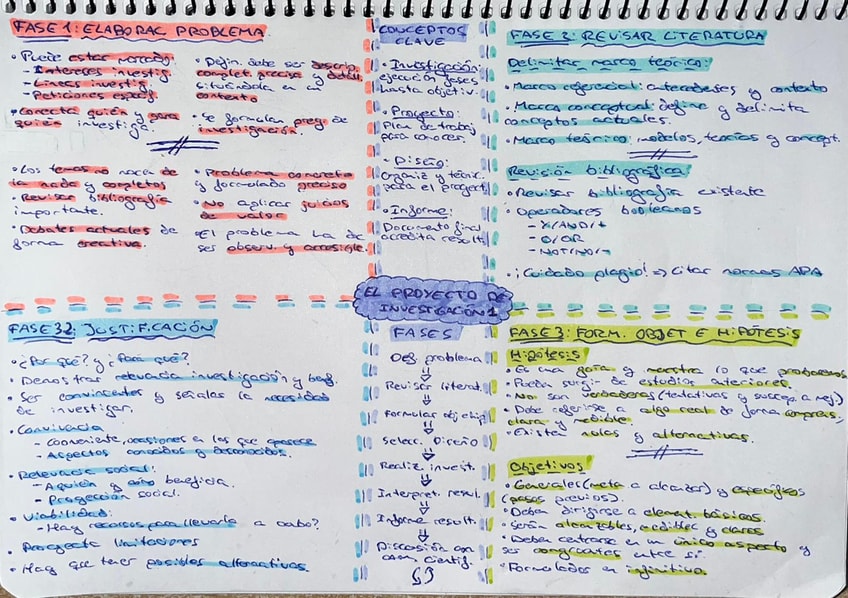 FASE 1: ELABORAR PROBLEMA
• Puede estar marcado:
- Intereses investig.
- Líneas investig.
- Peticiones especif.
• Conecta quién y para
quién investiga.
• Defin. debe ser descrip.
complet, precisa y detall.
situándola en un
contexto
• Se formulan preg. de
investigación.
• Los temas no nacen de
la nada y completos
• Revisar bibliografía
importante.
• Debates actuales de
forma creativa.
• Problema concreto
y formulado preciso
• No aplicar juicios
de valor
• El problema ha de
ser observ. y accesible.
CONCEPTOS
CLAVE
• Investigación:
ejecución fases
hasta objetiv.
• Proyecto:
Plan de trabaj
para conocer.
• Diseño:
Organiz y técnic.
para el proyect.
• Informe:
Documento final
acredita result.
FASE 2: REVISAR LITERATURA
Delimitar marco teórico:
• Marco referencial: antecedentes y contexto
• Marco conceptual: define y delimita
conceptos actuales.
• Marco teórico: modelos, teorías y concept.
Revisión bibliográfica
• Revisar bibliografía existente
• Operadores booleanos
- Y/AND/+
- O/OR
- NOT/NO/-
• ¡Cuidado plagio! => Citar normas APA
EL PROYECTO DE
INVESTIGACIÓN 1
FASE 32: JUSTIFICACIÓN
• ¿Por qué? y ¿Para qué?
• Demostrar relevancia investigación y benf.
• Ser convincentes y señalar la necesidad
de investigar.
• Convivencia
- Conveniente, ocasiones en las que aparece
- Aspectos conocidos y desconocidos.
• Relevancia social:
- A quién y cómo beneficia.
- Proyección social.
• Viabilidad:
- Hay recursos para llevarlo a cabo?
• Proyecta limitaciones
• Hay que tener posibles alternativas.
FASES
Def. problema
Revisar literat.
Formular obj e hip
Selecc. Diseño
Realiz. invest.
Interpret. resul.
Informe result.
Discusión con
com. científ.
FASE 3: FORM. OBJET E HIPÓTESIS
Hipótesis
• Es una guía y muestra lo que probamos
• Pueden surgir de estudios anteriores.
• No son verdaderas (tentativas y suscep. a mej.)
• Debe referirse a algo real de forma compren,
clara y medible.
• Existen nulas y alternativas.
Objetivos
• Generales (meta a alcanzar) y específicos
(pasos previos).
• Deben dirigirse a element. básicos.
• Serán alcanzables, medibles y claros
• Deben centrarse en un único aspecto y
ser congruentes entre sí.
• Formulados en infinitivo.